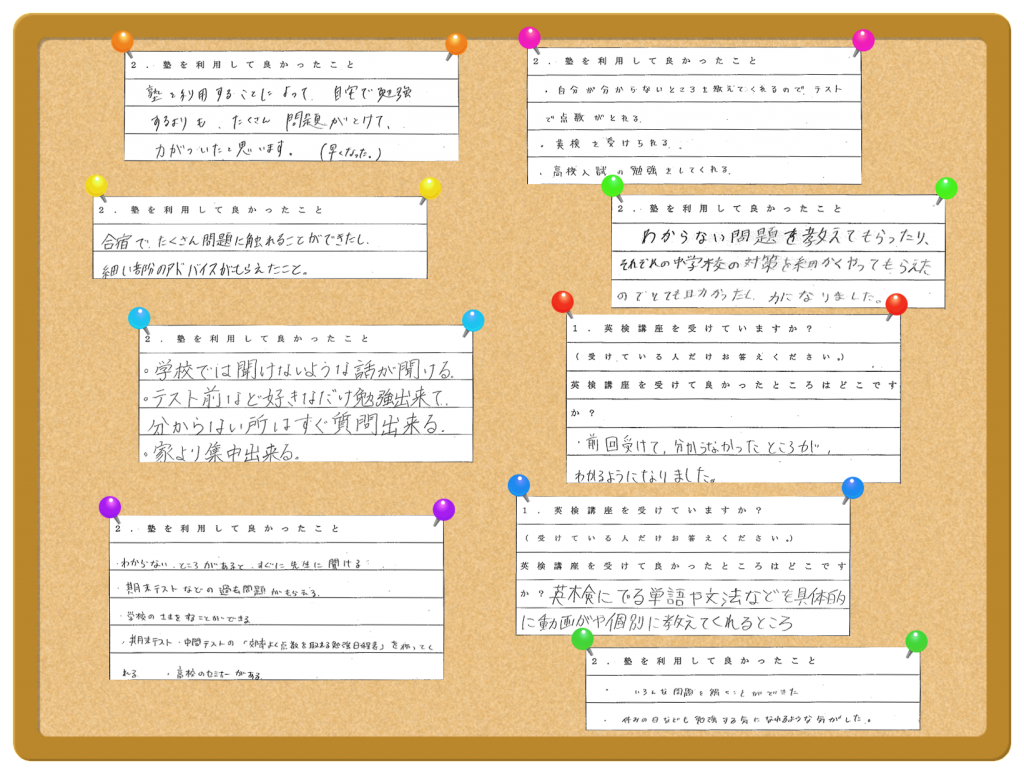 2．塾を利用して良かったこと
塾を利用することによって、自宅で勉強
するよりも、たくさん問題がとけて、
力がついたと思います。（早くなった。）
2．塾を利用して良かったこと
・自分が分からないところを教えてくれるので、テスト
で点数がとれる。
・英検を受けられる。
・高校入試の勉強をしてくれる。
2．塾を利用して良かったこと
合宿で、たくさん問題に触れることができたし、
細い部分のアドバイスがもらえたこと。
2．塾を利用して良かったこと
わからない問題を教えてもらったり、
それぞれの中学校の対策を細かくやってもらえた
のでとても良かったし、力になりました。
2．塾を利用して良かったこと
・学校では聞けないような話が聞ける。
・テスト前など好きなだけ勉強出来て、
分からない所はすぐ質問出来る。
・家より集中出来る。
1．英検講座を受けていますか？
（受けている人だけお答えください。）
英検講座を受けて良かったところはどこです
か？
・前回受けて、分からなかったところが、
わかるようになりました。
2．塾を利用して良かったこと
・わからないところがあると、すぐに先生に聞ける
・期末テストなどの過去問題がもらえる。
・学校の
ことができる
・期末テスト・中間テストの「効率よく点数を取れる勉強日程表」を作ってく
れる　・高校のセミナーがある。
1．英検講座を受けていますか？
（受けている人だけお答えください。）
英検講座を受けて良かったところはどこです
か？英検にでる単語や文法などを具体的
に動画や個別に教えてくれるところ
2．塾を利用して良かったこと
・いろんな問題を解くことができた
・休みの日なども勉強する気になれるような気がした。